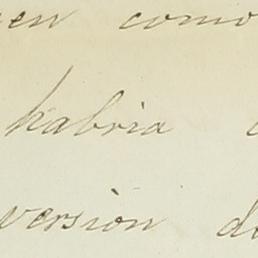 en como
habria
version de